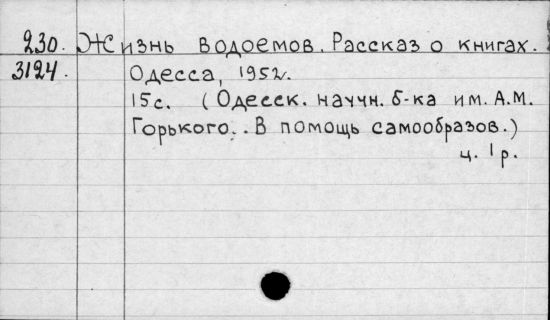 230. Жизнь водоемов. Рассказ о книгах.
3124. Одесса, 1952.
15с. (Одесск. научн. б-ка им. А.М.
Горького. . В помощь самообразов.)
ц. 1 р.